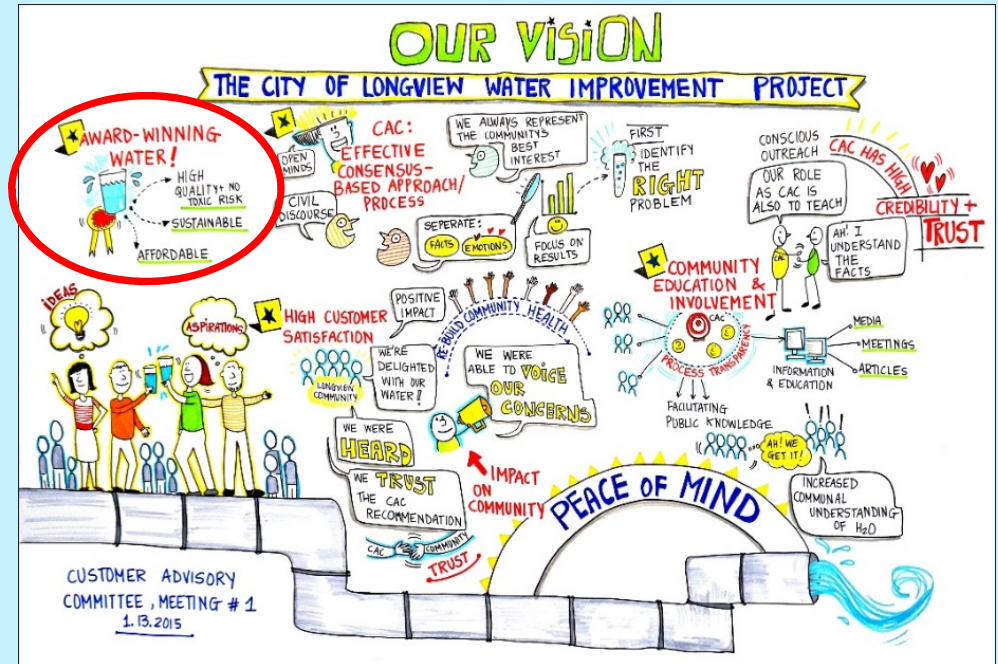 OUR VISION
THE CITY OF LONGVIEW WATER IMPROVEMENT PROJECT
AWARD-WINNING
WATER!
HIGH
QUALITY + NO
TOXIC RISK
SUSTAINABLE
AFFORDABLE
OPEN
MINDS
CIVIL
DISCOURSE
CAC:
EFFECTIVE
CONSENSUS-
BASED APPROACH/
PROCESS
WE ALWAYS REPRESENT
THE COMMUNITY'S
BEST
INTEREST
SEPERATE:
FACTS EMOTIONS
FOCUS ON
RESULTS
FIRST
IDENTIFY
THE
RIGHT
PROBLEM
CONSCIOUS
OUTREACH
OUR ROLE
AS CAC IS
ALSO TO TEACH
CAC HAS HIGH
CREDIBILITY +
TRUST
CAC
AH! I
UNDERSTAND
THE
FACTS
IDEAS
ASPIRATIONS
HIGH CUSTOMER
SATISFACTION
POSITIVE
IMPACT
LONGVIEW
COMMUNITY
WE'RE
DELIGHTED
WITH OUR
WATER!
RE BUILD COMMUNITY HEALTH
WE WERE
ABLE TO VOICE
OUR
CONCERNS
WE WERE
HEARD
WE TRUST
THE CAC
RECOMMENDATION
CAC COMMUNITY
TRUST
IMPACT
ON
COMMUNITY
COMMUNITY
EDUCATION &
INVOLVEMENT
CAC
PROCESS TRANSPARENCY
INFORMATION
& EDUCATION
MEDIA
MEETINGS
ARTICLES
FACILITATING
PUBLIC KNOWLEDGE
AH! WE
GET IT!
INCREASED
COMMUNAL
UNDERSTANDING
OF H2O
PEACE OF MIND
CUSTOMER ADVISORY
COMMITTEE, MEETING # 1
1.13.2015